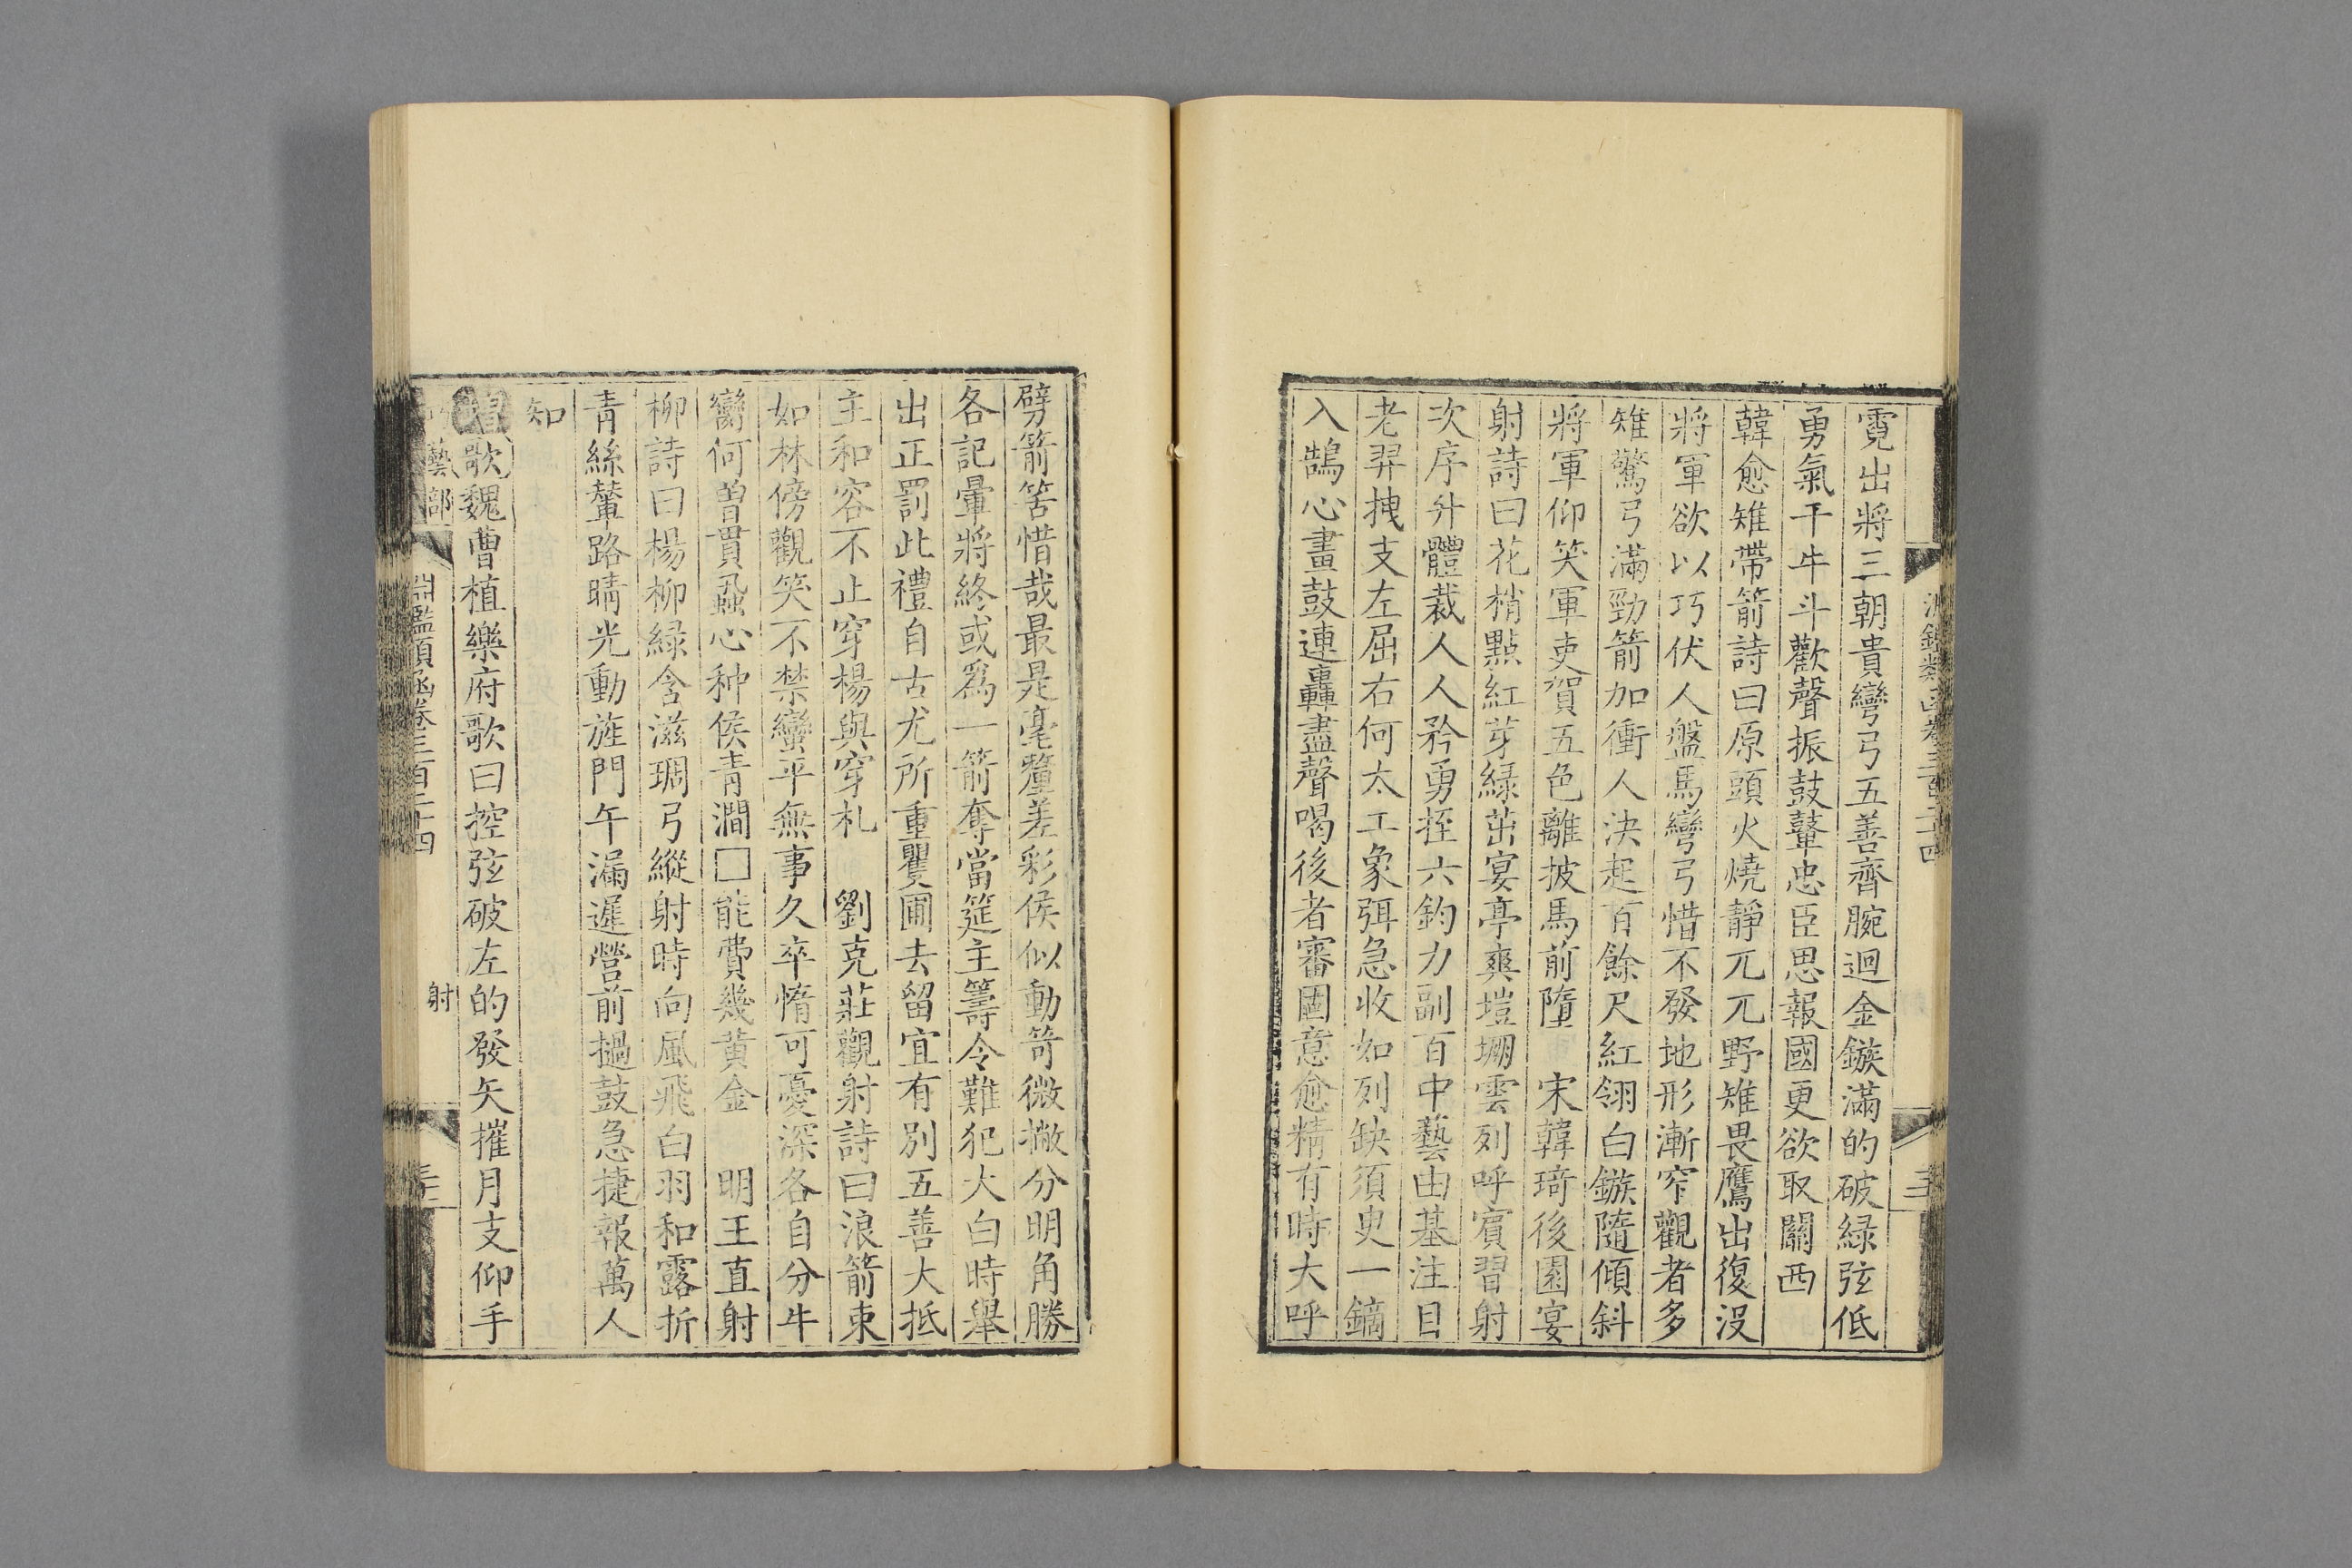 霓出將三朝貴彎弓五善齊腕迴金鏃滿的破綠弦低
勇氣干牛斗歡聲振鼓鼙忠臣思報國更欲取關西
韓愈雉帶箭詩曰原頭火燒靜兀兀野雉畏鷹出復沒
將軍欲以巧伏人盤馬彎弓惜不發地形漸窄觀者多
雉驚弓滿勁箭加衝人決起百餘尺紅翎白鏃隨傾斜
將軍仰笑軍吏賀五色離披馬前墮　宋韓琦後園宴
射詩曰花梢點紅芽綠茁宴亭爽塏堋雲列呼賓習射
次序升體裁人人矜勇拄六鈞力副百中藝由基注目
老羿拽支左屈右何太工象弭急收如列缺須臾一鏑
入鵠心畫鼓連轟盡聲喝後者審固意愈精有時大呼
淵鑑類函卷三百二十四
劈箭筈惜哉最是毫釐差彩侯似動笴微撇分明角勝
各記暈將終或爲一箭奪當筵主籌令難犯大白時舉
出正罰此禮自古尤所重矍圃去留宜有別五善大抵
主和容不止穿楊與穿札　劉克莊觀射詩曰浪箭束
如林傍觀笑不禁蠻平無事久卒惰可憂深各自分牛
臠何曾貫蝨心种侯青澗□能費幾黃金　明王直射
柳詩曰楊柳綠含滋琱弓縱射時向風飛白羽和露折
青絲輦路晴光動旌門午漏遲營前撾鼓急捷報萬人
知
增歌魏曹植樂府歌曰控弦破左的發矢摧月支仰手
巧藝部　淵鑑類函卷三百二十四　射